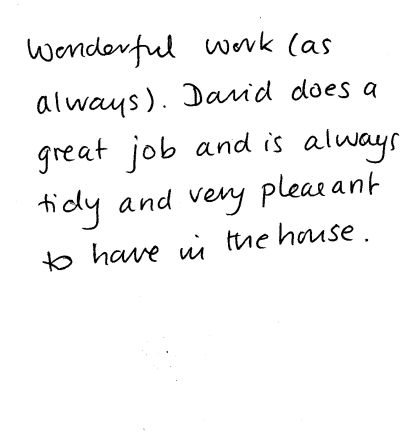 Wonderful work (as
always). David does a
great job and is always
tidy and very pleasant
to have in the house.